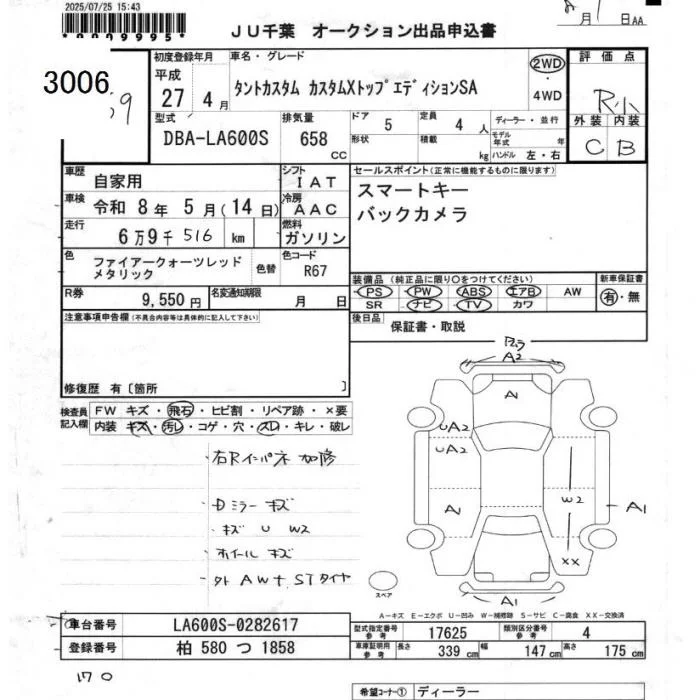 2025/07/25 15:43
*00099995*
JU千葉 オークション出品申込書
月 1 日AA
3006
初度登録年月
平成
27 年 4 月
車名・グレード
タントカスタム カスタムXトップエディションSA
2WD
・
4WD
評価点
R小
外装 内装
C B
型式
DBA-LA600S
排気量
658
cc
ドア
5
定員
4 人
形状
積載
kg
ディーラー・並行
モデル
年式 年
ハンドル 左・右
車歴
自家用
シフト
IAT
車検
令和 8 年 5 月(14 日)
冷房
AAC
走行
6万9千516 km
燃料
ガソリン
色
ファイアークォーツレッド
メタリック
色替
色コード
R67
R券
9,550 円
名変通知期限
月 日
セールスポイント(正常に機能するものに限ります)
スマートキー
バックカメラ
装備品(純正品に限り○をつけてください)
PS PW ABS エアB AW
SR ナビ TV カワ
新車保証書
有・無
後日品
保証書・取説
注意事項申告欄(不具合内容等は具体的に記入して下さい)
修復歴 有〔箇所 〕
検査員
記入欄
FW キズ・飛石・ヒビ割・リペア跡・×要
内装 キズ・汚レ・コゲ・穴・スレ・キレ・破レ
・右Rインパネ加修
・Dミラー キズ
・キズ U W2
・ホイール キズ
・外 AW+STタイヤ
A2
A
UA2
UA2
A
W2
A1
XX
A1
スペア
A-キズ E-エクボ U-凹み W-補修跡 S-サビ C-腐食 XX-交換済
車台番号
LA600S-0282617
登録番号
柏 580 つ 1858
型式指定番号
参考
17625
類別区分番号
参考
4
車庫証明用
参考
長さ
339 cm
幅
147 cm
高さ
175 cm
170
希望コーナー①
ディーラー